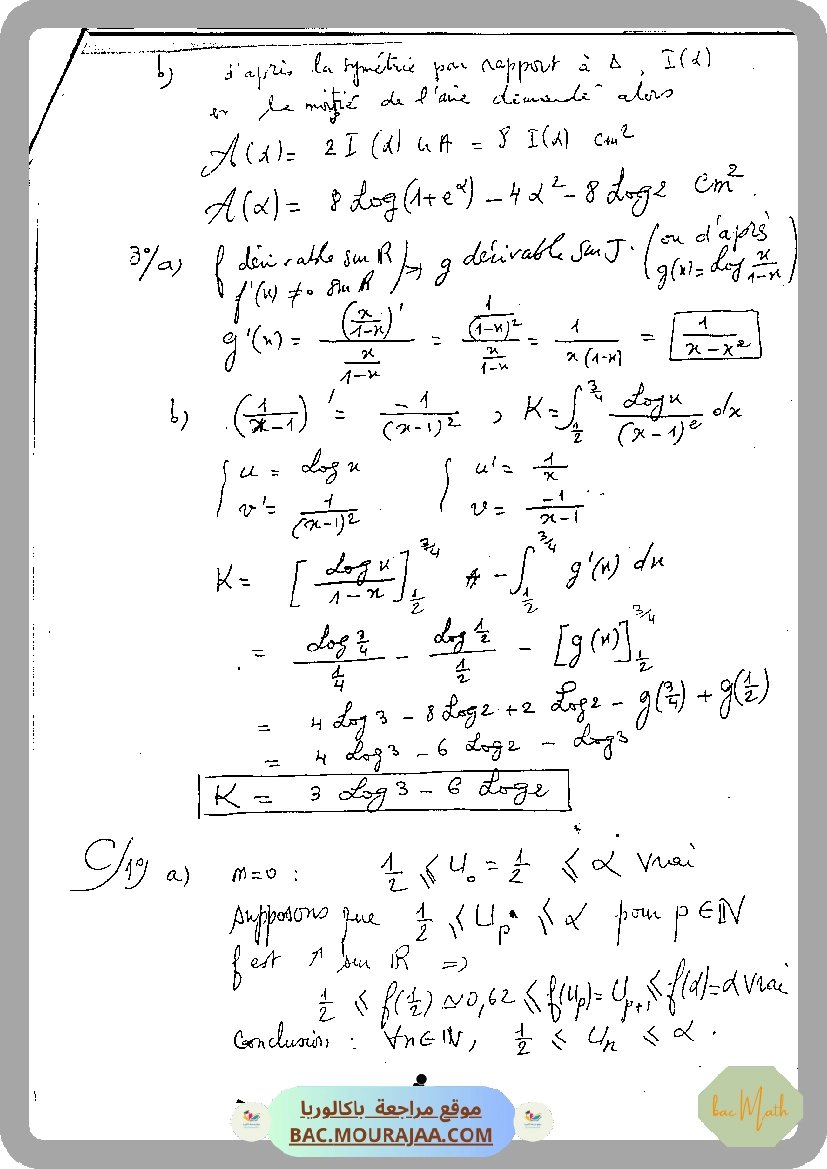 b) d'après la symétrie par rapport à Δ, I(α)
la moitié de l'aire demandé alors
A(α) = 2 I(α) uA = 8 I(α) cm²
A(α) = 8 Log(1+e^α) − 4α² − 8 Log2 cm².
3°/a) f dérivable sur ℝ
f'(x) ≠ 0 sur ℝ
g dérivable sur J. (ou d'après g(x) = Log x/(1−x))
g'(x) = (x/(1−x))' / (x/(1−x)) = (1/(1−x)²) / (x/(1−x)) = 1/(x(1−x)) = 1/(x−x²)
b) (1/(x−1))' = −1/(x−1)² , K = ∫_{1/2}^{3/4} Log x/(x−1)² dx
{ u = Log x { u' = 1/x
v' = 1/(x−1)² v = −1/(x−1)
K = [Log x/(1−x)]_{1/2}^{3/4} − ∫_{1/2}^{3/4} g'(x) dx
= Log 3/4 / (1/4) − Log 1/2 / (1/2) − [g(x)]_{1/2}^{3/4}
= 4 Log 3 − 8 Log 2 + 2 Log 2 − g(3/4) + g(1/2)
= 4 Log 3 − 6 Log 2 − Log 3
K = 3 Log 3 − 6 Log 2
C/1°) a) n=0 : 1/2 ≤ U₀ = 1/2 ≤ α vrai
supposons que 1/2 ≤ U_p ≤ α pour p ∈ ℕ
f est ↑ sur ℝ ⇒
1/2 ≤ f(1/2) ≃ 0,62 ≤ f(U_p) = U_{p+1} ≤ f(α) = α vrai
Conclusion : ∀n ∈ ℕ, 1/2 ≤ U_n ≤ α.
موقع مراجعة باكالوريا
BAC.MOURAJAA.COM
bac Math